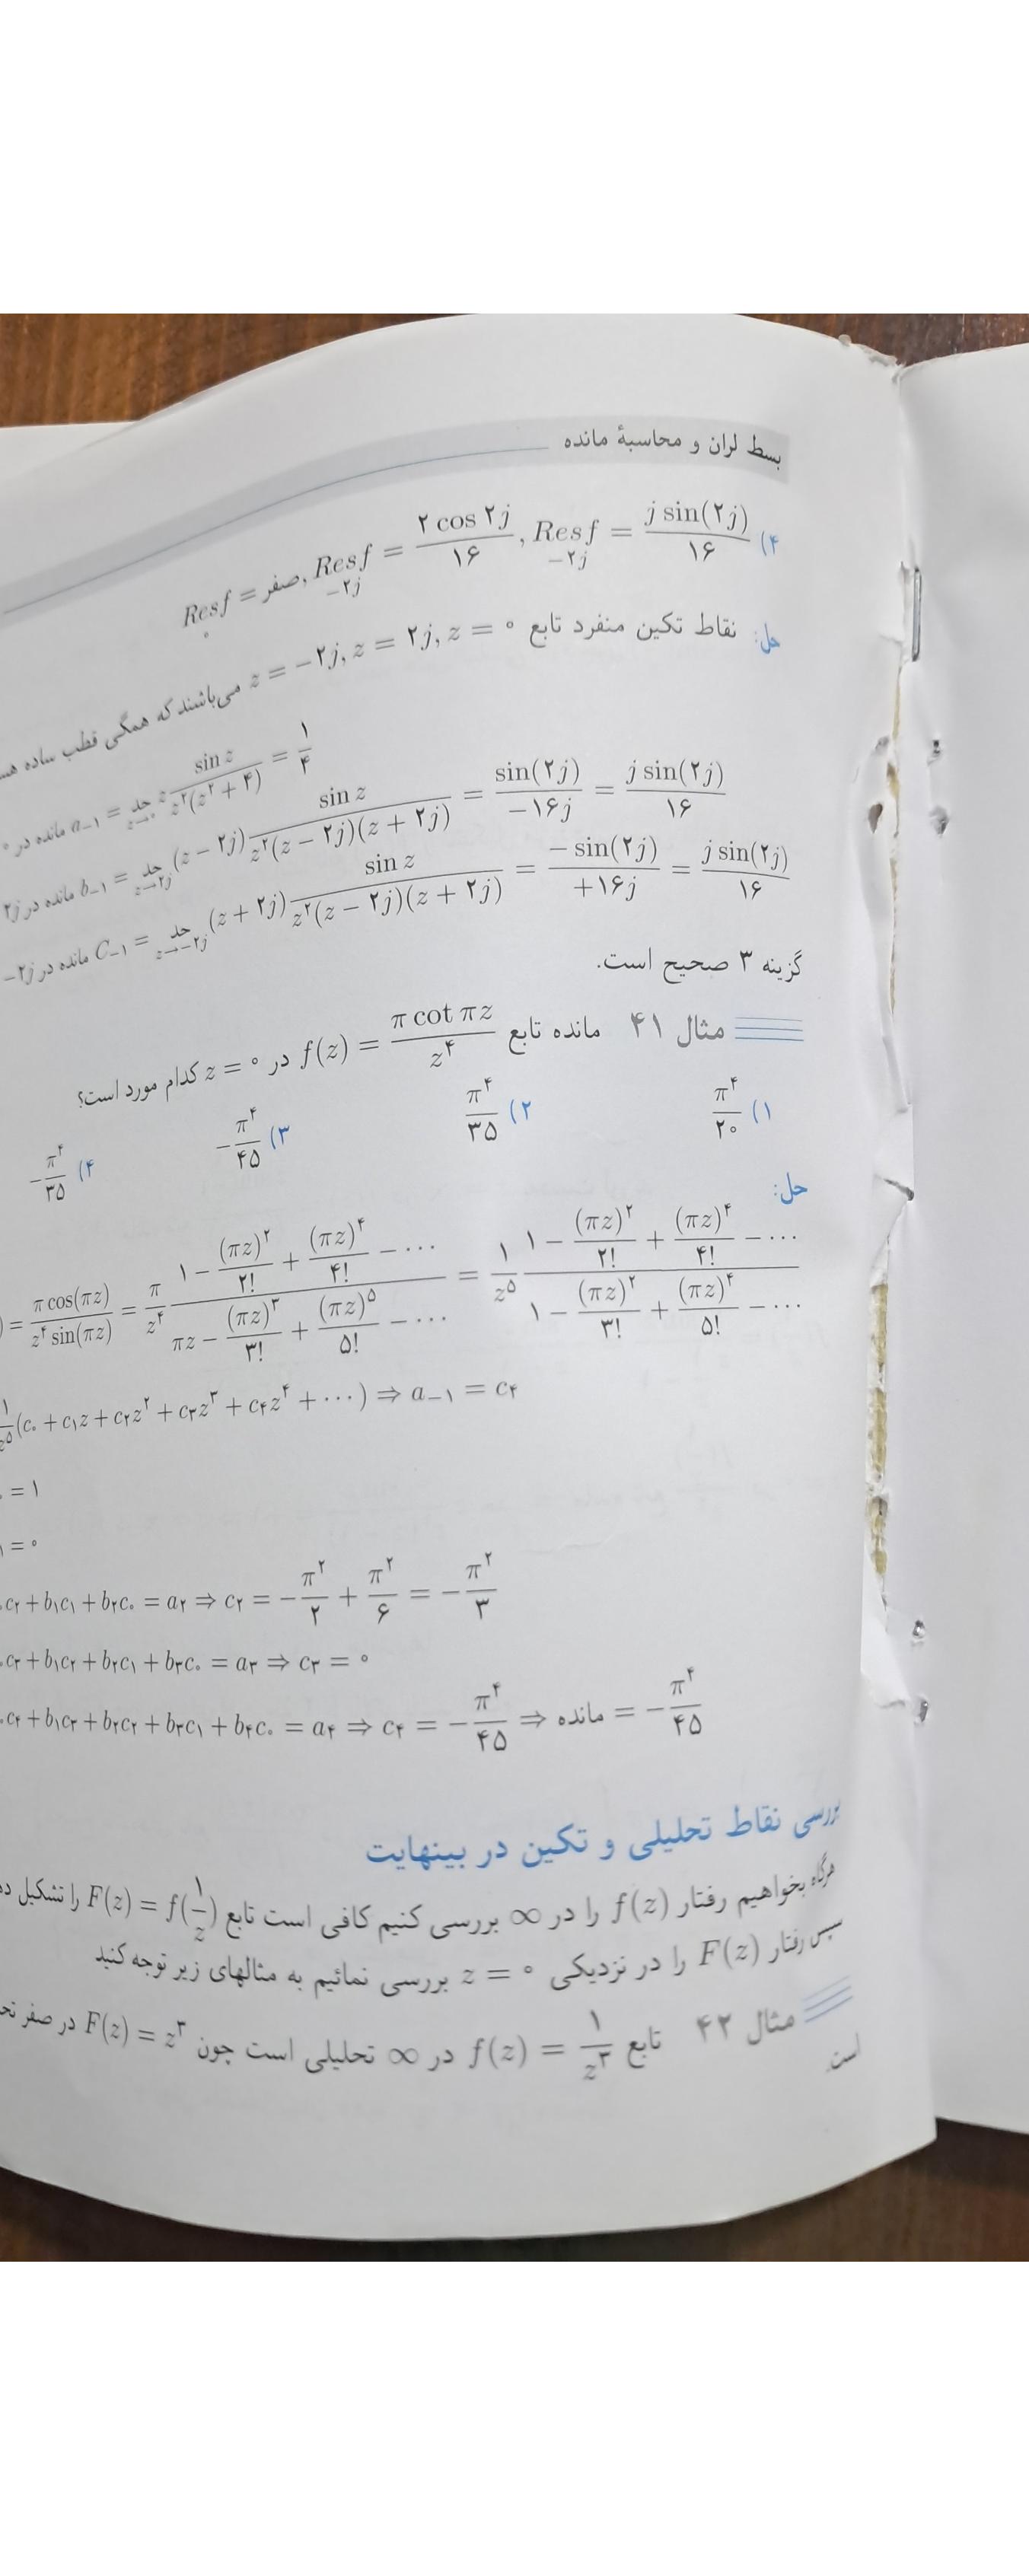 بسط لران و محاسبهٔ مانده
۴) Resf = صفر, Resf = ۲ cos ۲j / ۱۶, Resf = j sin(۲j) / ۱۶
۰ −۲j −۲j
حل: نقاط تکین منفرد تابع z = −۲j, z = ۲j, z = ۰ می‌باشند که همگی قطب ساده
مانده در ۰ a₋۱ = حد z→۰ z sin z / z^۲(z^۲ + ۴) = ۱/۴
مانده در ۲j b₋۱ = حد z→۲j (z − ۲j) sin z / z^۲(z − ۲j)(z + ۲j) = sin(۲j) / −۱۶j = j sin(۲j) / ۱۶
مانده در −۲j C₋۱ = حد z→−۲j (z + ۲j) sin z / z^۲(z − ۲j)(z + ۲j) = − sin(۲j) / +۱۶j = j sin(۲j) / ۱۶
گزینه ۳ صحیح است.
مثال ۴۱ مانده تابع f(z) = π cot πz / z^۴ در z = ۰ کدام مورد است؟
۱) π^۴/۲۰ ۲) π^۴/۳۵ ۳) −π^۴/۴۵ ۴) −π^۴/۳۵
حل:
) = π cos(πz) / z^۴ sin(πz) = π/z^۴ (۱ − (πz)^۲/۲! + (πz)^۴/۴! − ···) / (πz − (πz)^۳/۳! + (πz)^۵/۵! − ···) = ۱/z^۵ (۱ − (πz)^۲/۲! + (πz)^۴/۴! − ···) / (۱ − (πz)^۲/۳! + (πz)^۴/۵! − ···)
۱/z^۵ (c۰ + c۱z + c۲z^۲ + c۳z^۳ + c۴z^۴ + ···) ⇒ a₋۱ = c۴
= ۱
= ۰
c۲ + b۱c۱ + b۲c۰ = a۲ ⇒ c۲ = −π^۲/۲ + π^۲/۶ = −π^۲/۳
c۳ + b۱c۲ + b۲c۱ + b۳c۰ = a۳ ⇒ c۳ = ۰
c۴ + b۱c۳ + b۲c۲ + b۳c۱ + b۴c۰ = a۴ ⇒ c۴ = −π^۴/۴۵ ⇒ مانده = −π^۴/۴۵
بررسی نقاط تحلیلی و تکین در بینهایت
هرگاه بخواهیم رفتار f(z) را در ∞ بررسی کنیم کافی است تابع F(z) = f(۱/z) را تشکیل
سپس رفتار F(z) را در نزدیکی z = ۰ بررسی نمائیم به مثالهای زیر توجه کنید
مثال ۴۲ تابع f(z) = ۱/z^۳ در ∞ تحلیلی است چون F(z) = z^۳ در صفر
است.